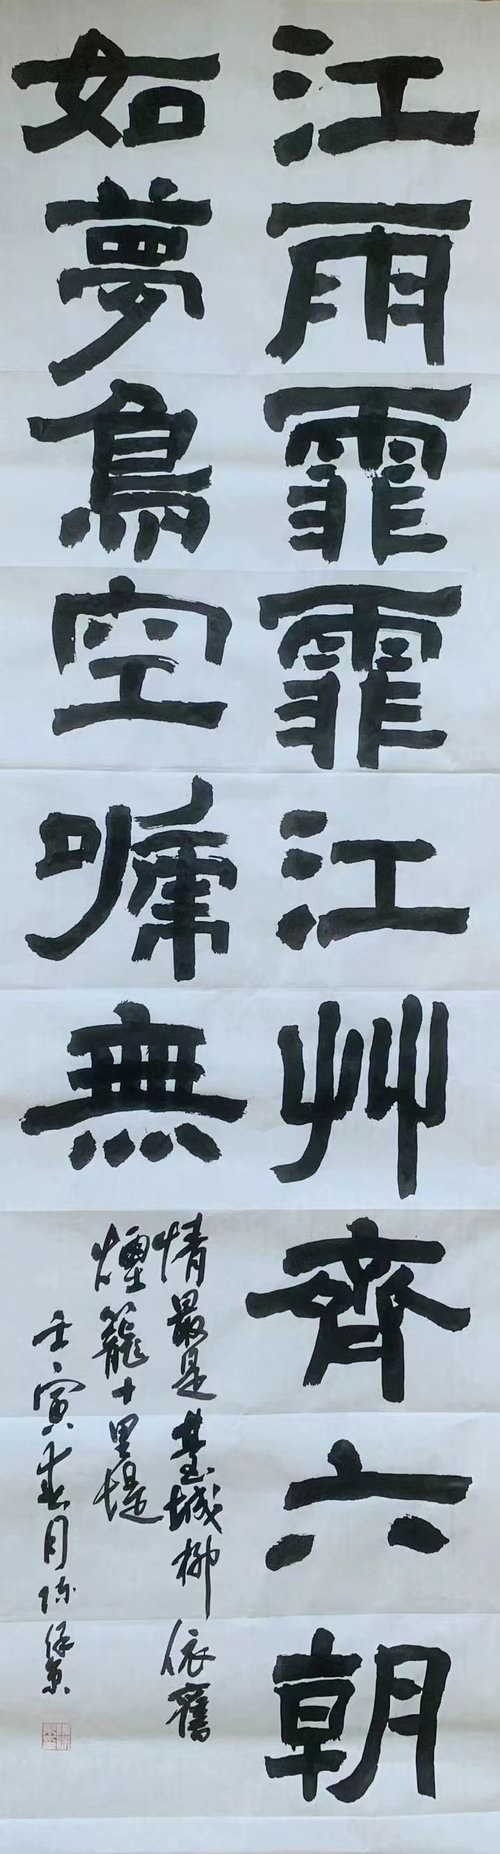 江雨霏霏江艸齊六朝
如夢鳥空嗁無
情最是臺城柳依舊
煙籠十里堤
壬寅春月陈